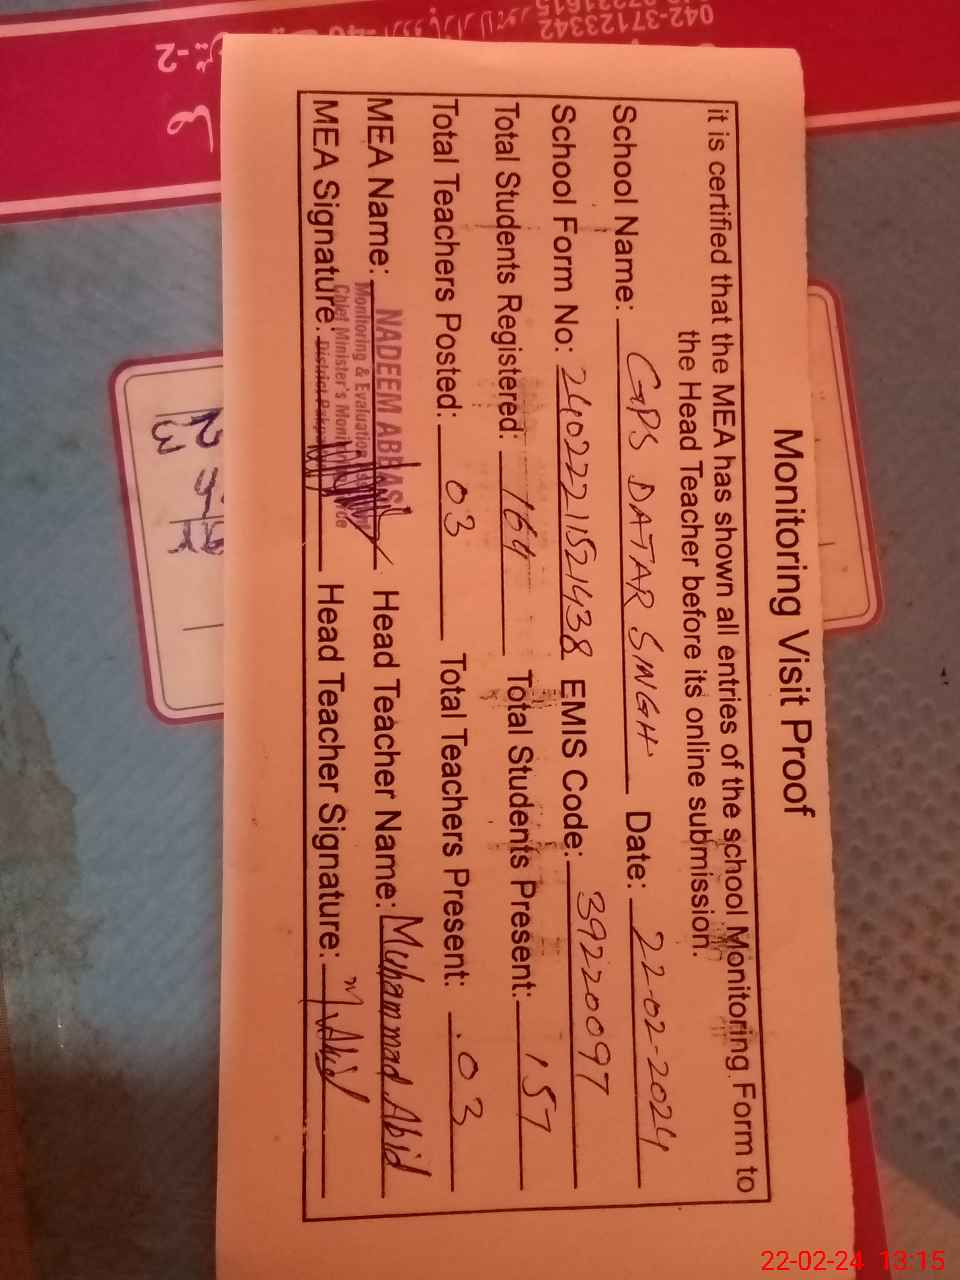 Monitoring Visit Proof
it is certified that the MEA has shown all entries of the school Monitoring Form to
the Head Teacher before its online submission.
School Name: GPS DATAR SINGH Date: 22-02-2024
School Form No: 24022211521438 EMIS Code: 39220097
Total Students Registered: 164 Total Students Present: 157
Total Teachers Posted: 03 Total Teachers Present: .03
MEA Name: NADEEM ABBASI Head Teacher Name: Muhammad Abid
Monitoring & Evaluation
Chief Minister's
MEA Signature: District Head Teacher Signature: M Abid
042-37123342
22-02-24 13:15